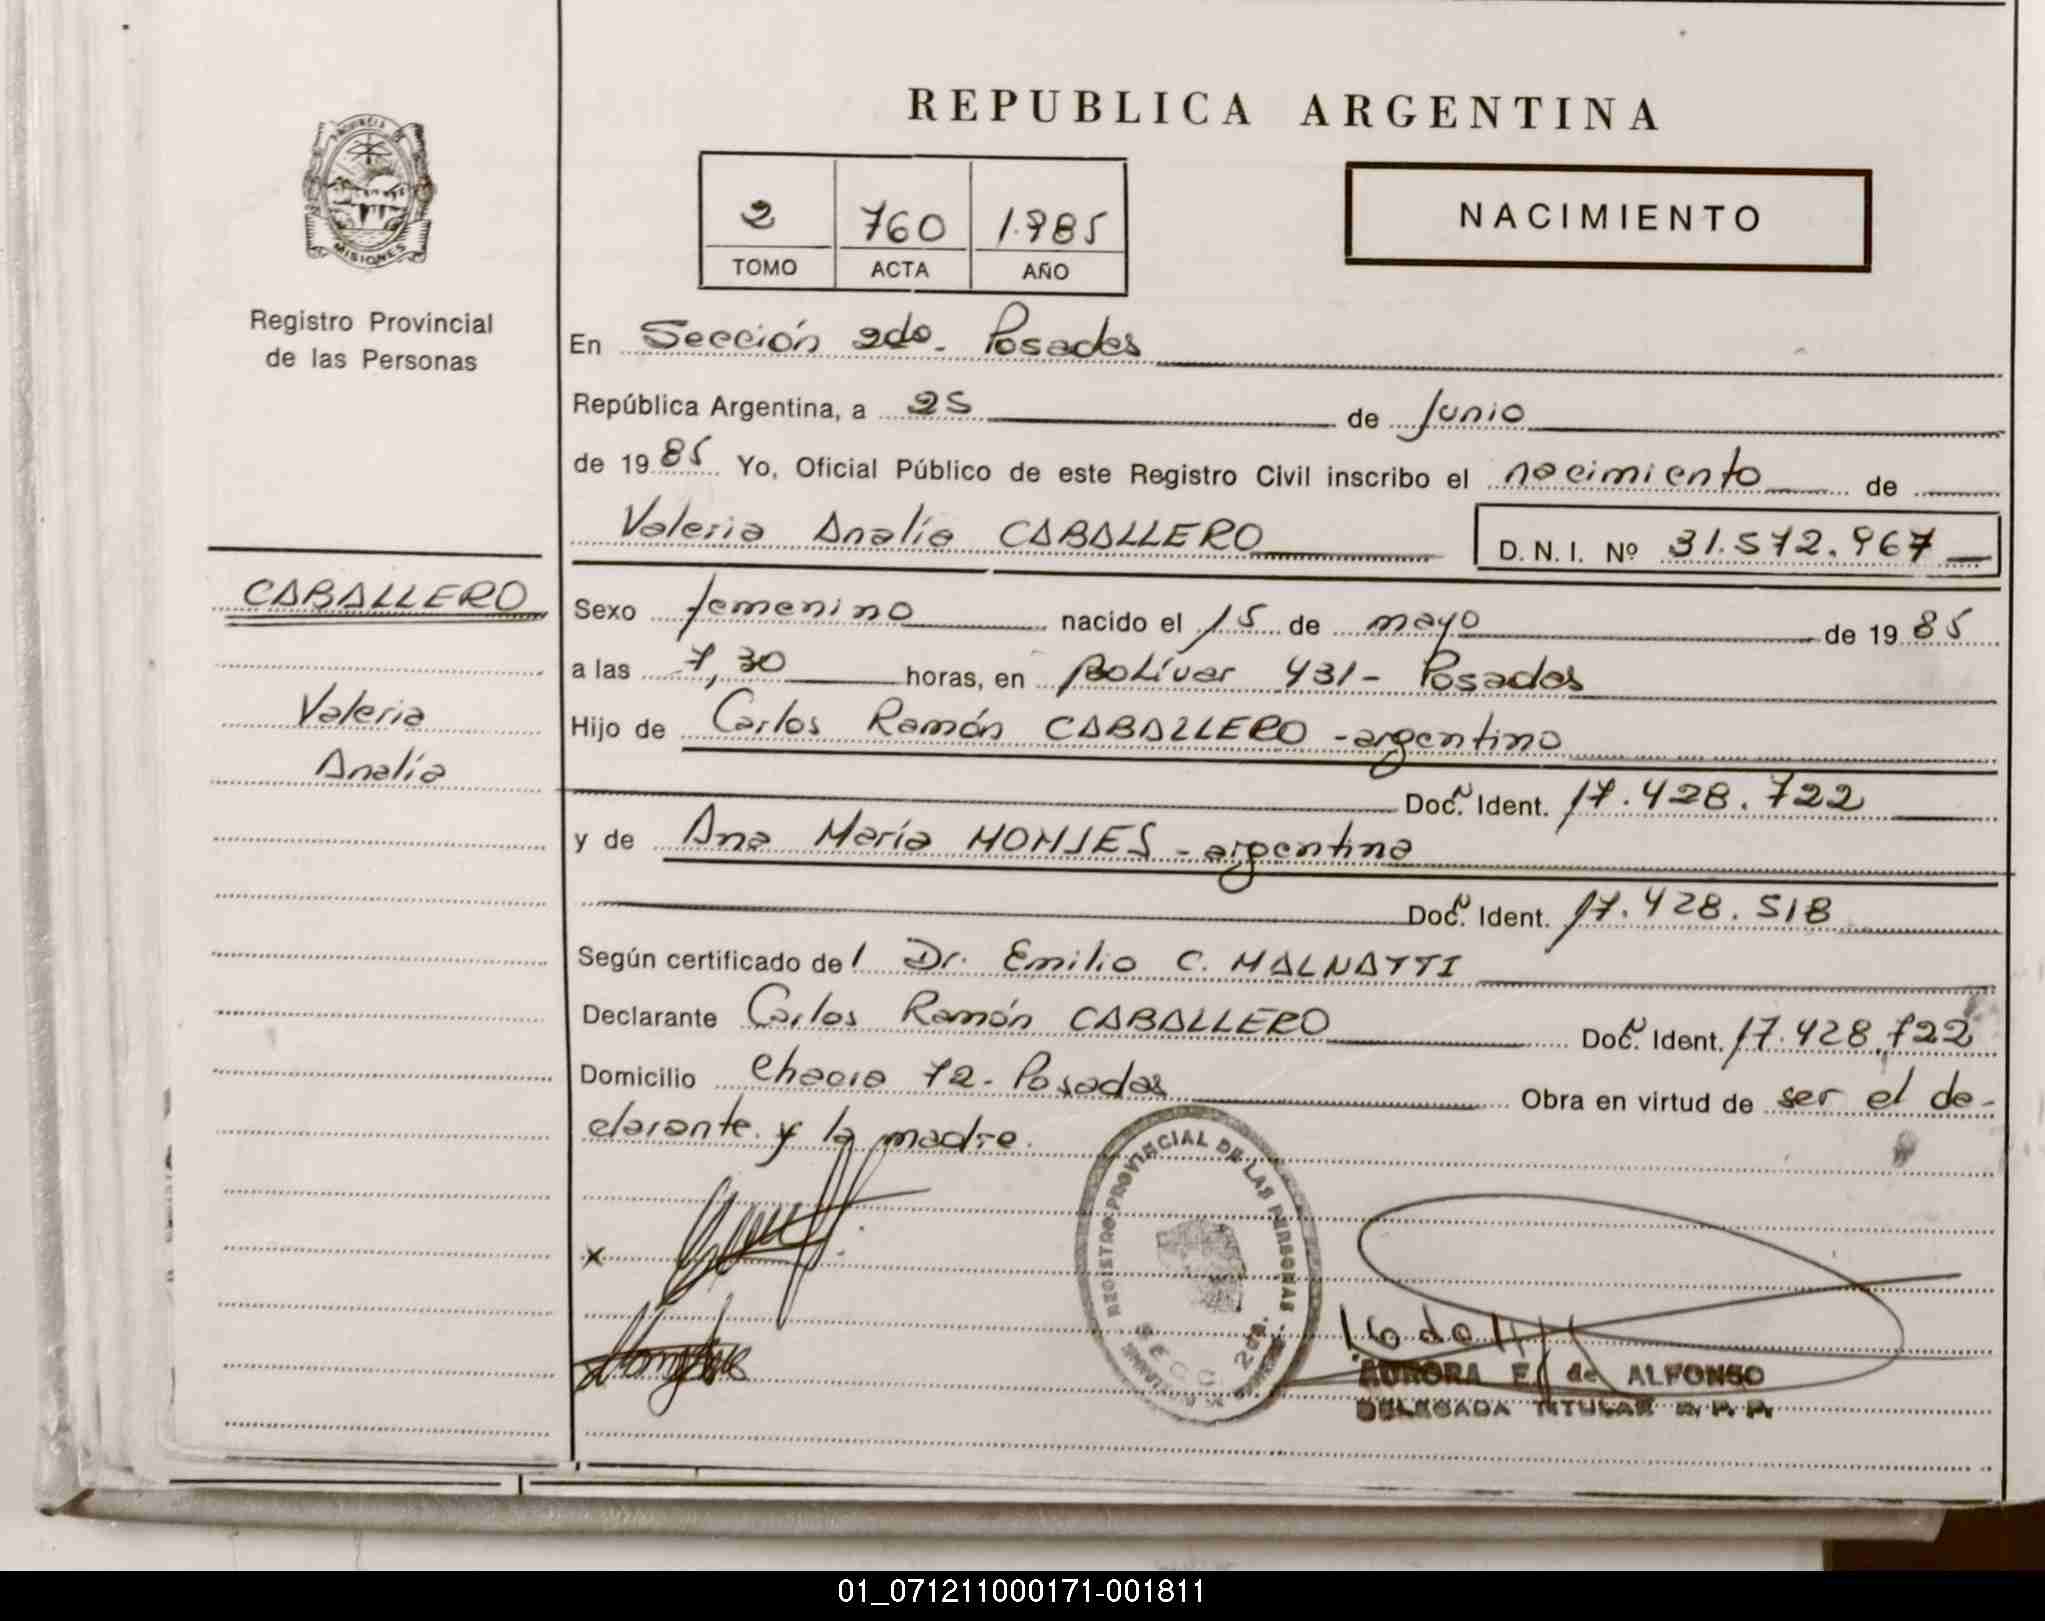 REPUBLICA ARGENTINA
PROVINCIA DE
MISIONES
Registro Provincial
de las Personas
2 760 1.985
TOMO ACTA AÑO
NACIMIENTO
En Sección 2da. Posadas
República Argentina, a 25 de Junio
de 1985 Yo, Oficial Público de este Registro Civil inscribo el nacimiento de
Valeria Analía CABALLERO D. N. I. Nº 31.572.967
CABALLERO
Valeria
Analía
Sexo femenino nacido el 15 de mayo de 1985
a las 7,30 horas, en Bolívar 431- Posadas
Hijo de Carlos Ramón CABALLERO -argentino
Doc. Ident. 17.428.722
y de Ana María MONJES -argentina
Doc. Ident. 17.428.518
Según certificado del Dr. Emilio C. MALNATTI
Declarante Carlos Ramón CABALLERO Doc. Ident. 17.428.722
Domicilio Chacra 72- Posadas Obra en virtud de ser el de-
clarante y la madre.
x
REGISTRO PROVINCIAL DE LAS PERSONAS
SECC. 2da.
AURORA E. de ALFONSO
DELEGADA TITULAR R. P. P.
01_071211000171-001811